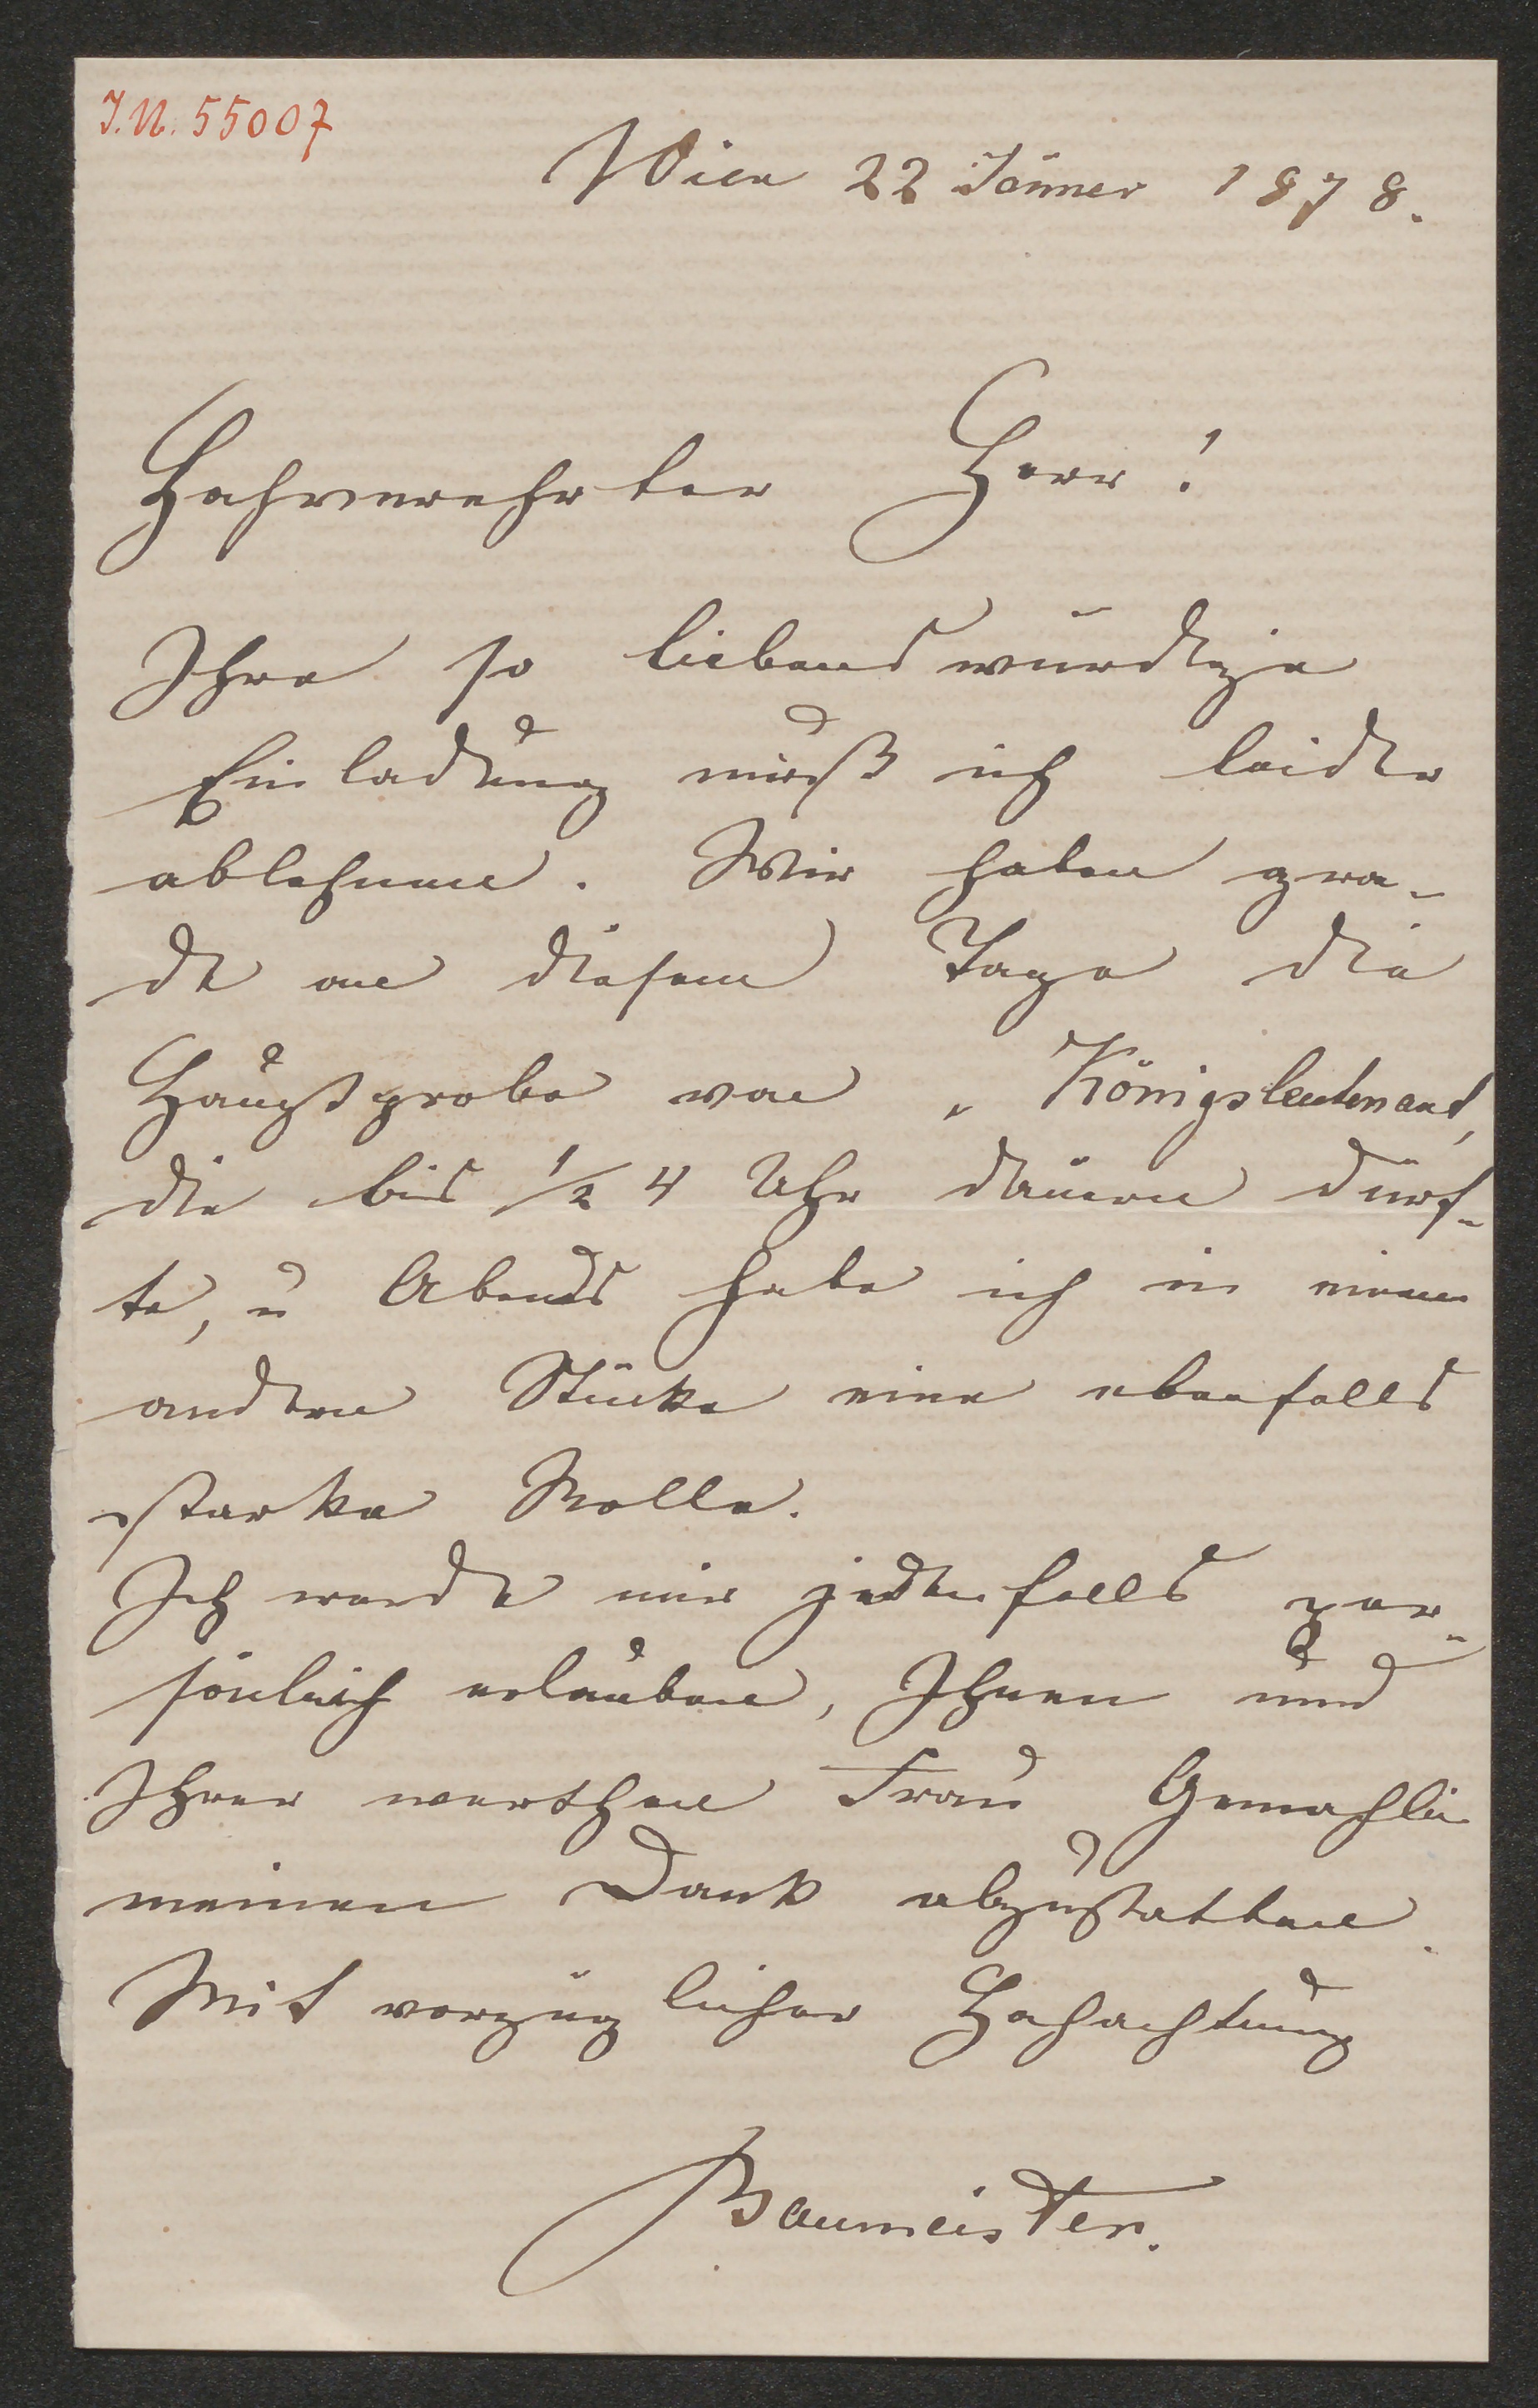 J.N. 55007
Wien 22 Jänner 1878.
Hochverehrter Herr!
Ihre so liebenswürdige
Einladung muß ich leider
ablehnen. Wir haben gra-
de an diesem Tage die
Hauptprobe von „Königsleutenant,
die bis 1/2 4 Uhr dauern dürf-
te, u Abends habe ich in einem
andern Stücke eine ebenfalls
starke Rolle.
Ich werde mir jedenfalls per-
sönlich erlauben, Ihnen und
Ihrer werthen Frau Gemahlin
meinen Dank abzustatten.
Mit vorzüglicher Hochachtung
Baumeister.